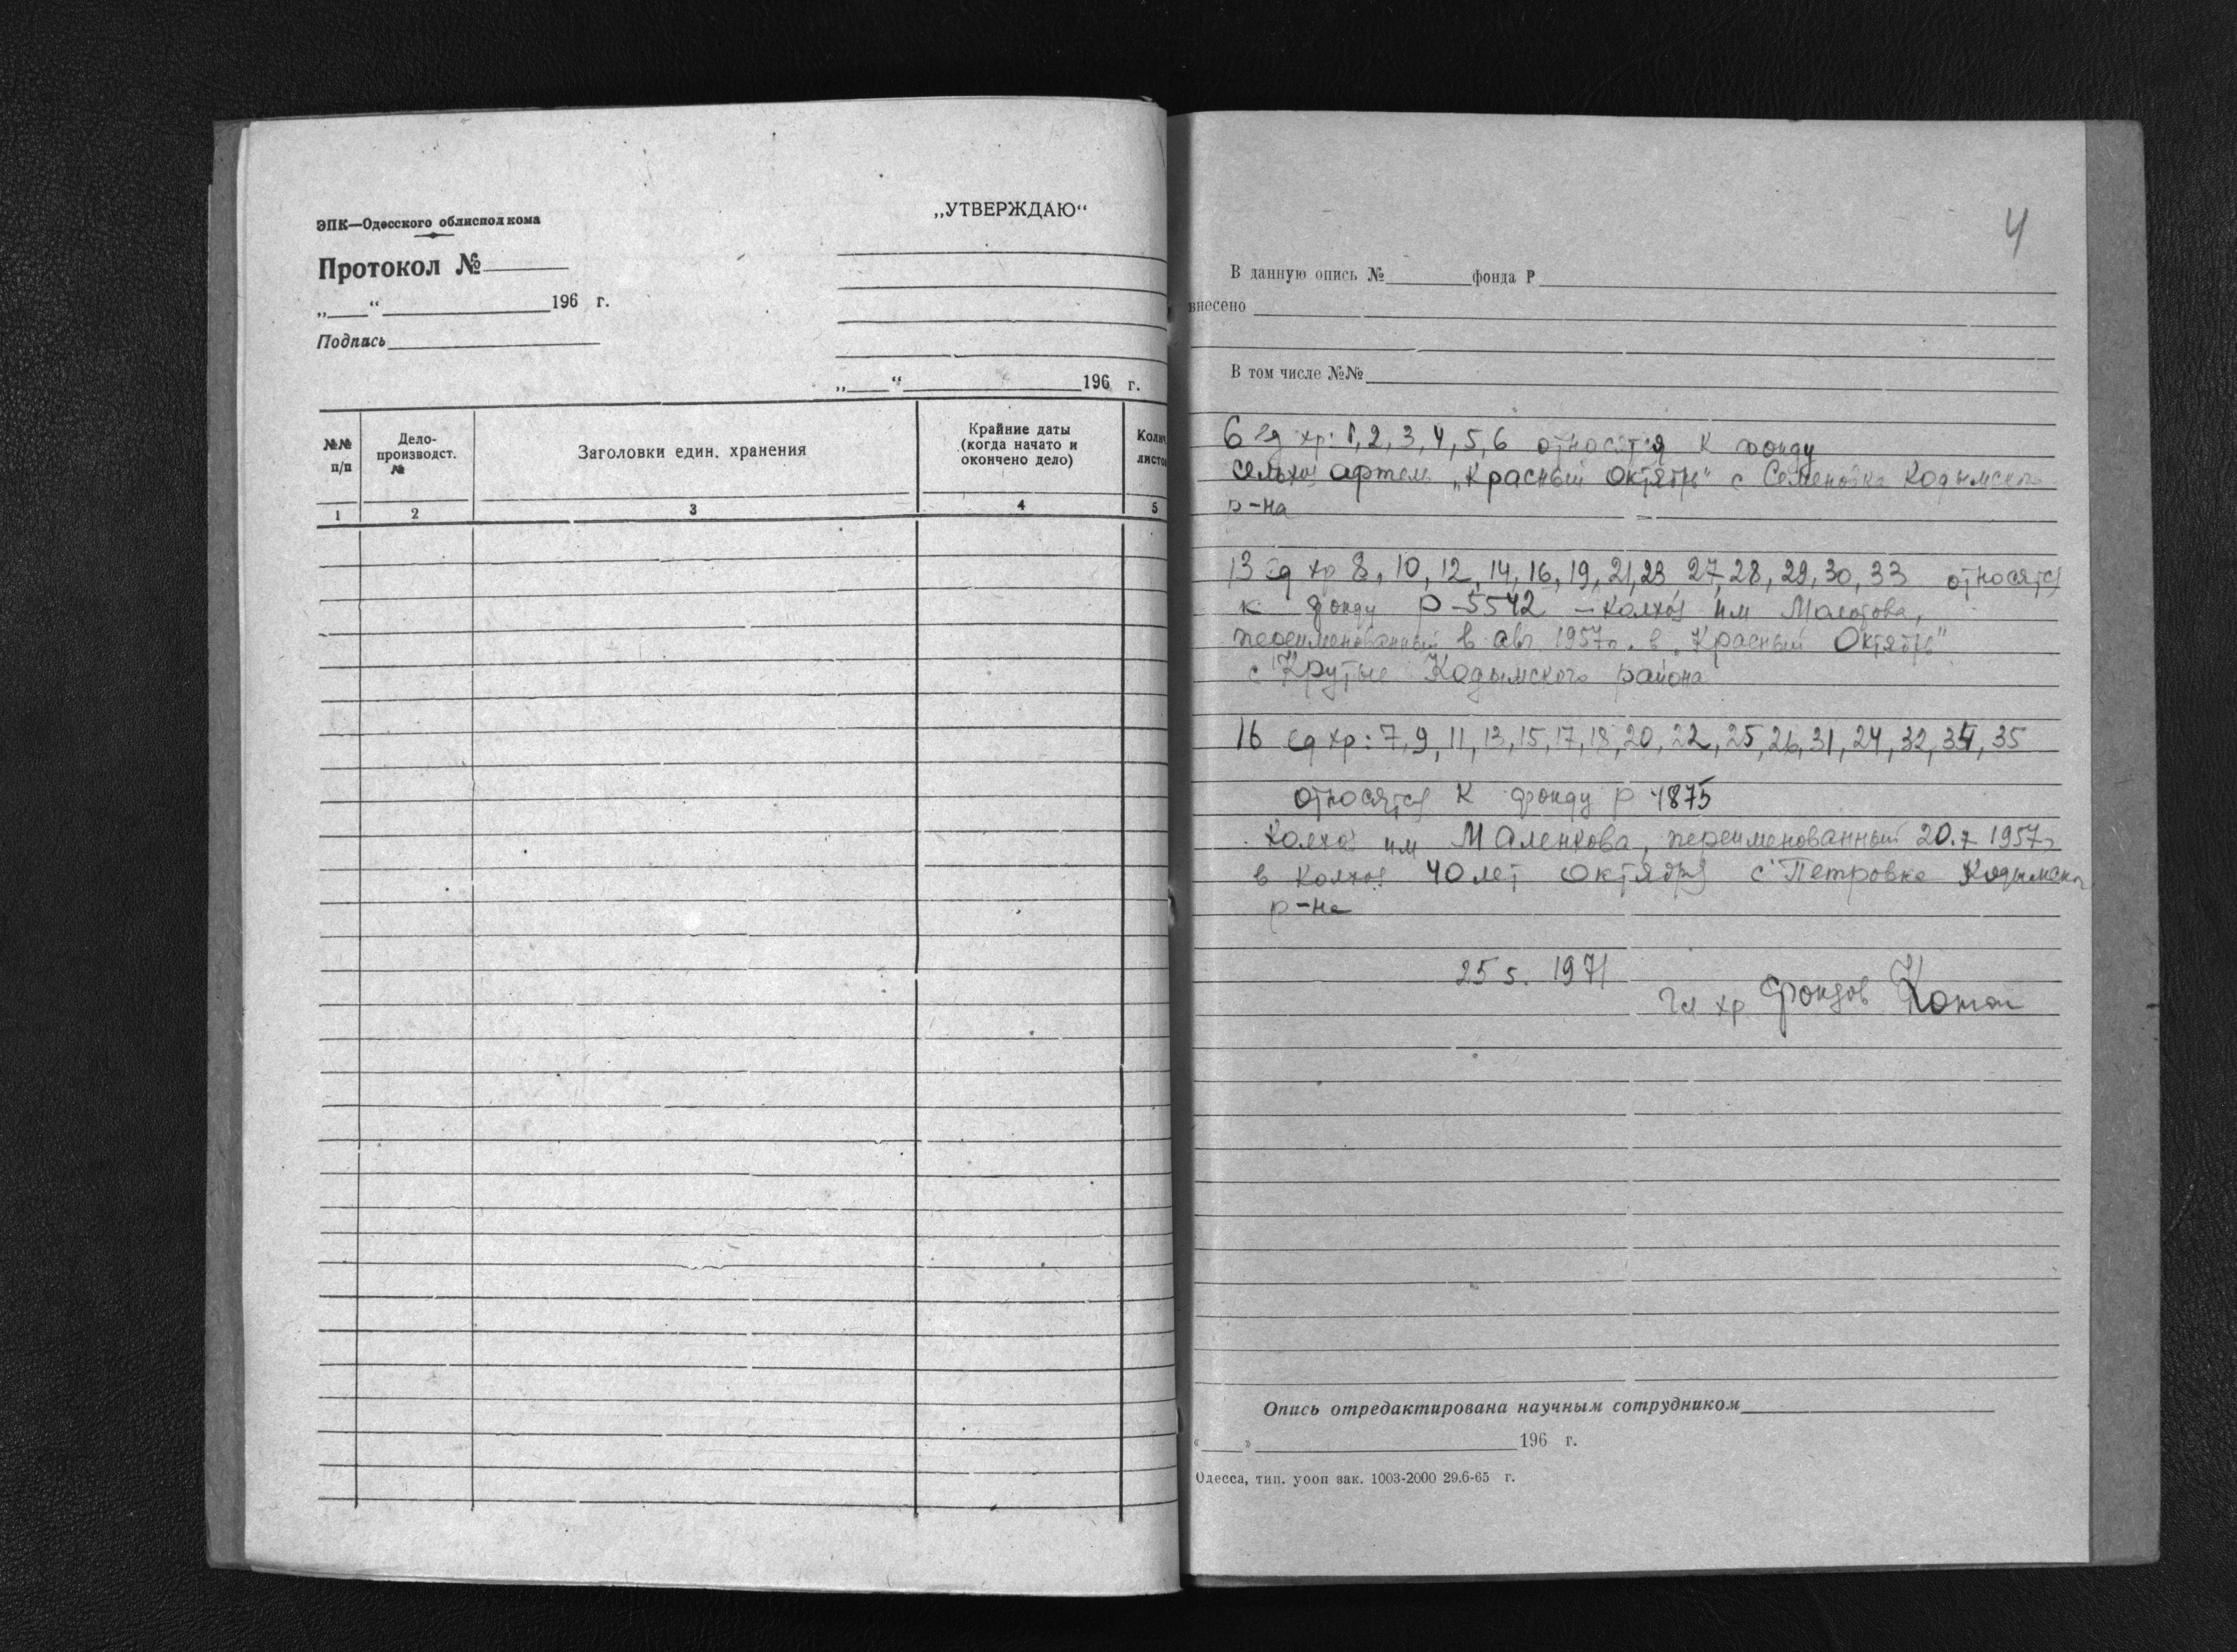 ЭПК—Одесского облисполкома
Протокол №
„ “ 196 г.
Подпись
„УТВЕРЖДАЮ“
„ “ 196 г.
№№ п/п
Дело-производст. №
Заголовки един. хранения
Крайние даты (когда начато и окончено дело)
Колич. листо
1 2 3 4 5
4
В данную опись № фонда Р
внесено
В том числе №№
6 ед хр: 1, 2, 3, 4, 5, 6 относятся к фонду
сельхоз артель „Красный Октябрь" с Семеновка Кодымского
р-на
13 ед хр 8, 10, 12, 14, 16, 19, 21, 23 27, 28, 29, 30, 33 относятся
к фонду Р-5542 – колхоз им Молотова,
переименованный в авг. 1957г. в „Красный Октябрь"
с Крутые Кодымского района
16 ед хр: 7, 9, 11, 13, 15, 17, 18, 20, 22, 25, 26, 31, 24, 32, 34, 35
относятся к фонду Р 4875
Колхоз им Маленкова, переименованный 20.7 1957г
в колхоз 40 лет Октября с Петровка Кодымског
р-на
25 5. 1971
Гл хр фондов
Опись отредактирована научным сотрудником
« » 196 г.
Одесса, тип. уооп зак. 1003-2000 29.6-65 г.